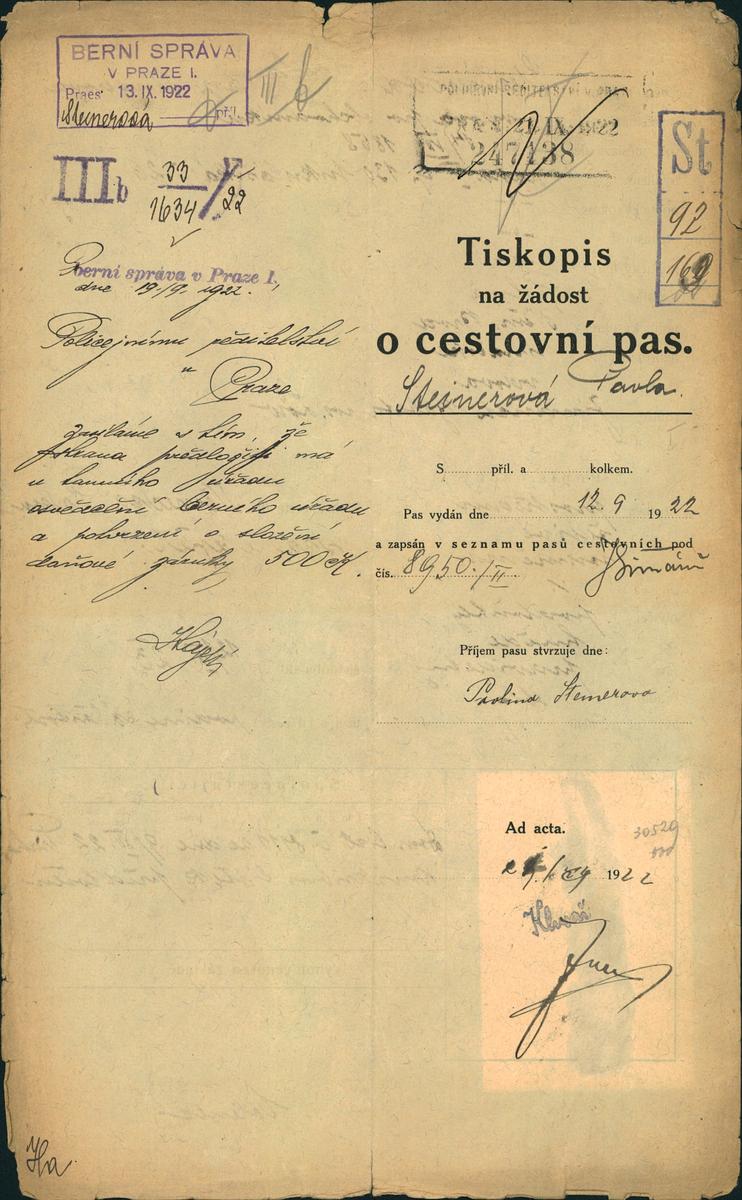 BERNÍ SPRÁVA
V PRAZE I.
Praes. 13. IX. 1922
Steinerová příl.
III b
III b 33/1634/22
berní správa v Praze I.
dne 19/9. 1922.
Policejnímu ředitelství
v Praze
zasíláme s tím, že
strana předložiti má
u tamního úřadu
osvědčení berního úřadu
a potvrzení o složení
daňové záruky 500 Kč.
Hájek
21. IX. 1922
247138
St
92
169
Tiskopis
na žádost
o cestovní pas.
Steinerová Pavla
S příl. a kolkem.
Pas vydán dne 12. 9 1922
a zapsán v seznamu pasů cestovních pod
čís. 8950./II
Příjem pasu stvrzuje dne:
Paolina Steinerova
Ad acta.
30529
1922
Ha